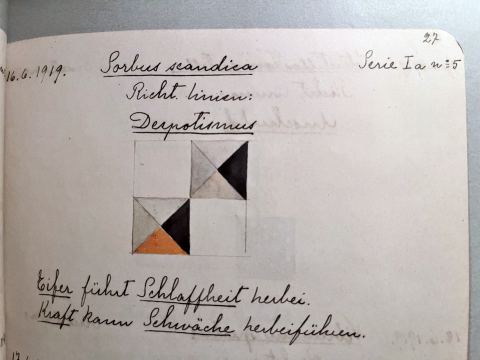 27
16.6.1919. Sorbus scandica Serie I a nº 5
Richt. linien:
Despotismus
Eifer führt Schlaffheit herbei.
Kraft kann Schwäche herbeiführen.